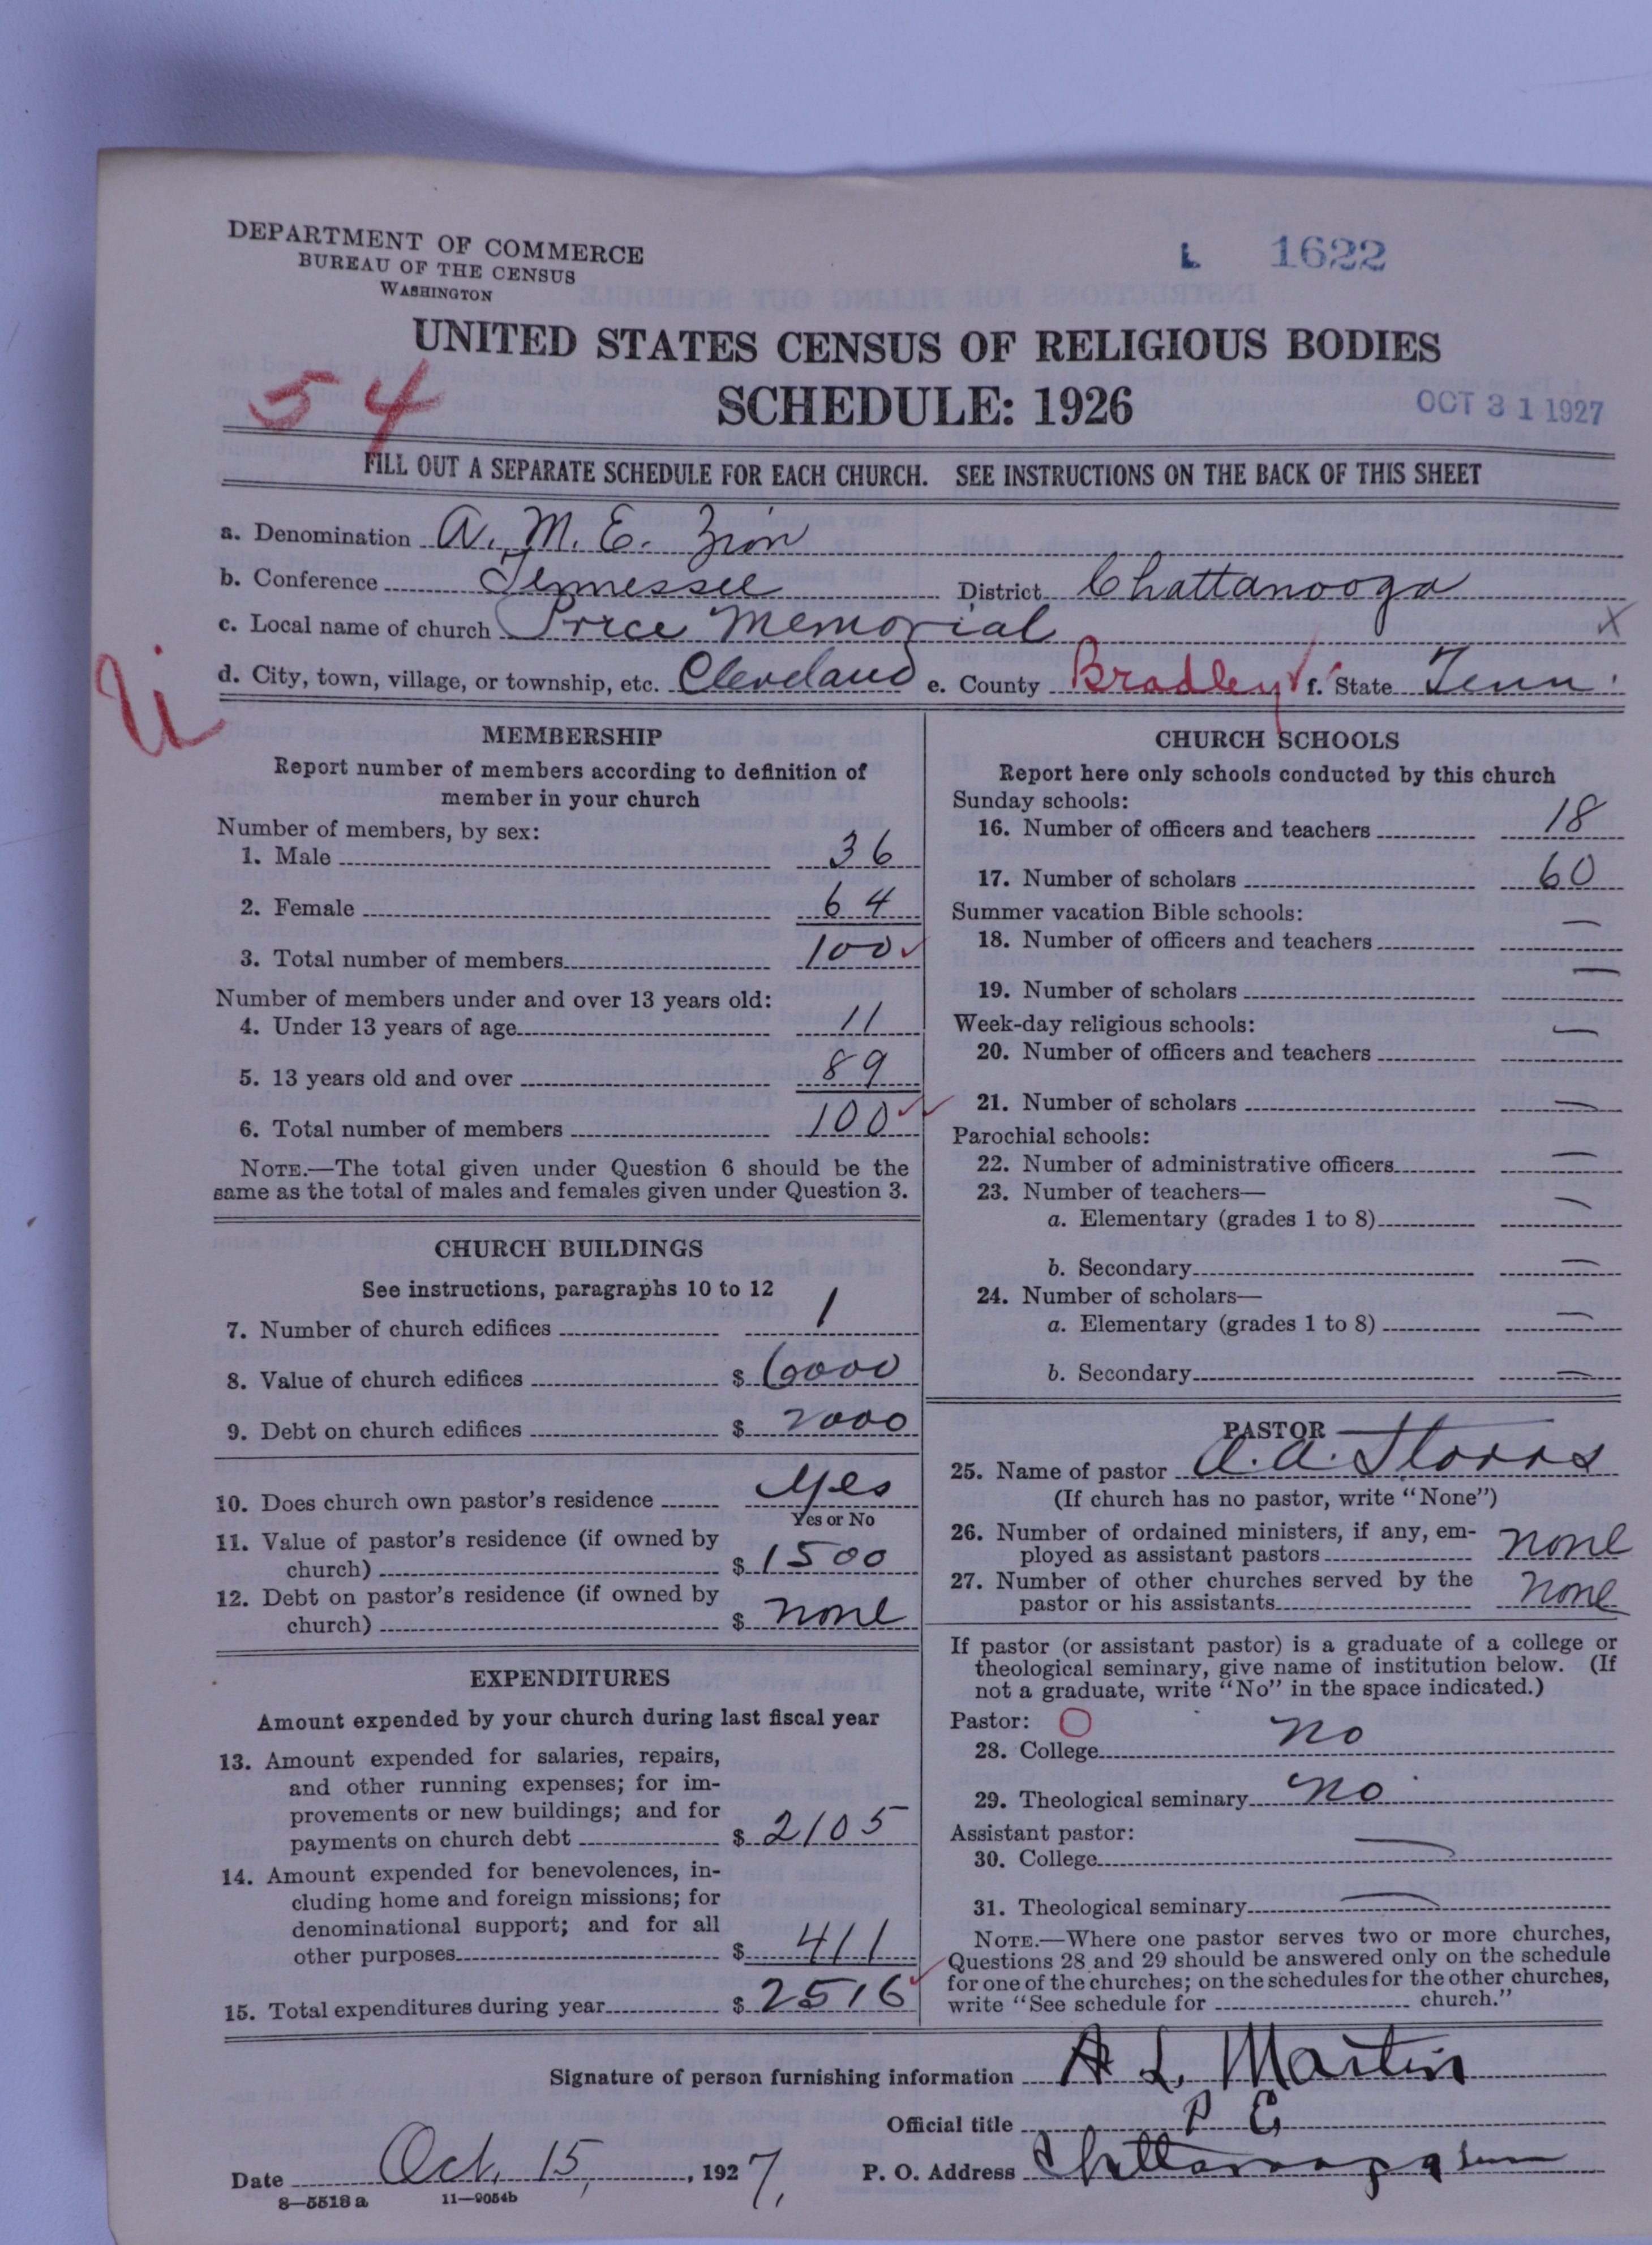 DEPARTMENT OF COMMERCE
BUREAU OF THE CENSUS
WASHINGTON
L 1622
UNITED STATES CENSUS OF RELIGIOUS BODIES
SCHEDULE: 1926
54
OCT 31 1927
FILL OUT A SEPARATE SCHEDULE FOR EACH CHURCH. SEE INSTRUCTIONS ON THE BACK OF THIS SHEET
a. Denomination A. M. E. Zion
b. Conference Tennessee District Chattanooga
c. Local name of church Price Memorial X
d. City, town, village, or township, etc. Cleveland e. County Bradley f. State Tenn.
MEMBERSHIP
Report number of members according to definition of
member in your church
Number of members, by sex:
1. Male 36
2. Female 64
3. Total number of members 100
Number of members under and over 13 years old:
4. Under 13 years of age 11
5. 13 years old and over 89
6. Total number of members 100
NOTE.—The total given under Question 6 should be the
same as the total of males and females given under Question 3.
CHURCH BUILDINGS
See instructions, paragraphs 10 to 12
7. Number of church edifices 1
8. Value of church edifices $ 6000
9. Debt on church edifices $ 2000
10. Does church own pastor's residence yes
Yes or No
11. Value of pastor's residence (if owned by
church) $ 1500
12. Debt on pastor's residence (if owned by
church) $ none
EXPENDITURES
Amount expended by your church during last fiscal year
13. Amount expended for salaries, repairs,
and other running expenses; for im-
provements or new buildings; and for
payments on church debt $ 2105
14. Amount expended for benevolences, in-
cluding home and foreign missions; for
denominational support; and for all
other purposes $ 411
15. Total expenditures during year $ 2516
CHURCH SCHOOLS
Report here only schools conducted by this church
Sunday schools:
16. Number of officers and teachers 18
17. Number of scholars 60
Summer vacation Bible schools:
18. Number of officers and teachers —
19. Number of scholars —
Week-day religious schools:
20. Number of officers and teachers —
21. Number of scholars —
Parochial schools:
22. Number of administrative officers —
23. Number of teachers—
a. Elementary (grades 1 to 8) —
b. Secondary —
24. Number of scholars—
a. Elementary (grades 1 to 8) —
b. Secondary —
PASTOR
25. Name of pastor A. A. Storrs
(If church has no pastor, write "None")
26. Number of ordained ministers, if any, em-
ployed as assistant pastors none
27. Number of other churches served by the
pastor or his assistants none
If pastor (or assistant pastor) is a graduate of a college or
theological seminary, give name of institution below. (If
not a graduate, write "No" in the space indicated.)
Pastor: O
28. College no
29. Theological seminary no
Assistant pastor:
30. College —
31. Theological seminary —
NOTE.—Where one pastor serves two or more churches,
Questions 28 and 29 should be answered only on the schedule
for one of the churches; on the schedules for the other churches,
write "See schedule for church."
Signature of person furnishing information A L. Martin
Official title P E
Date Oct. 15, 1927. P. O. Address Chattanooga Tenn
8—5518 a 11—9054b